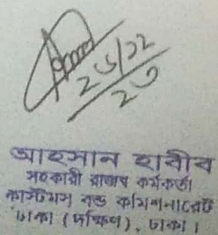 ২৬/১২
২৩
আহসান হাবীব
সহকারী রাজস্ব কর্মকর্তা
কাস্টমস বন্ড কমিশনারেট
ঢাকা (দক্ষিণ), ঢাকা।